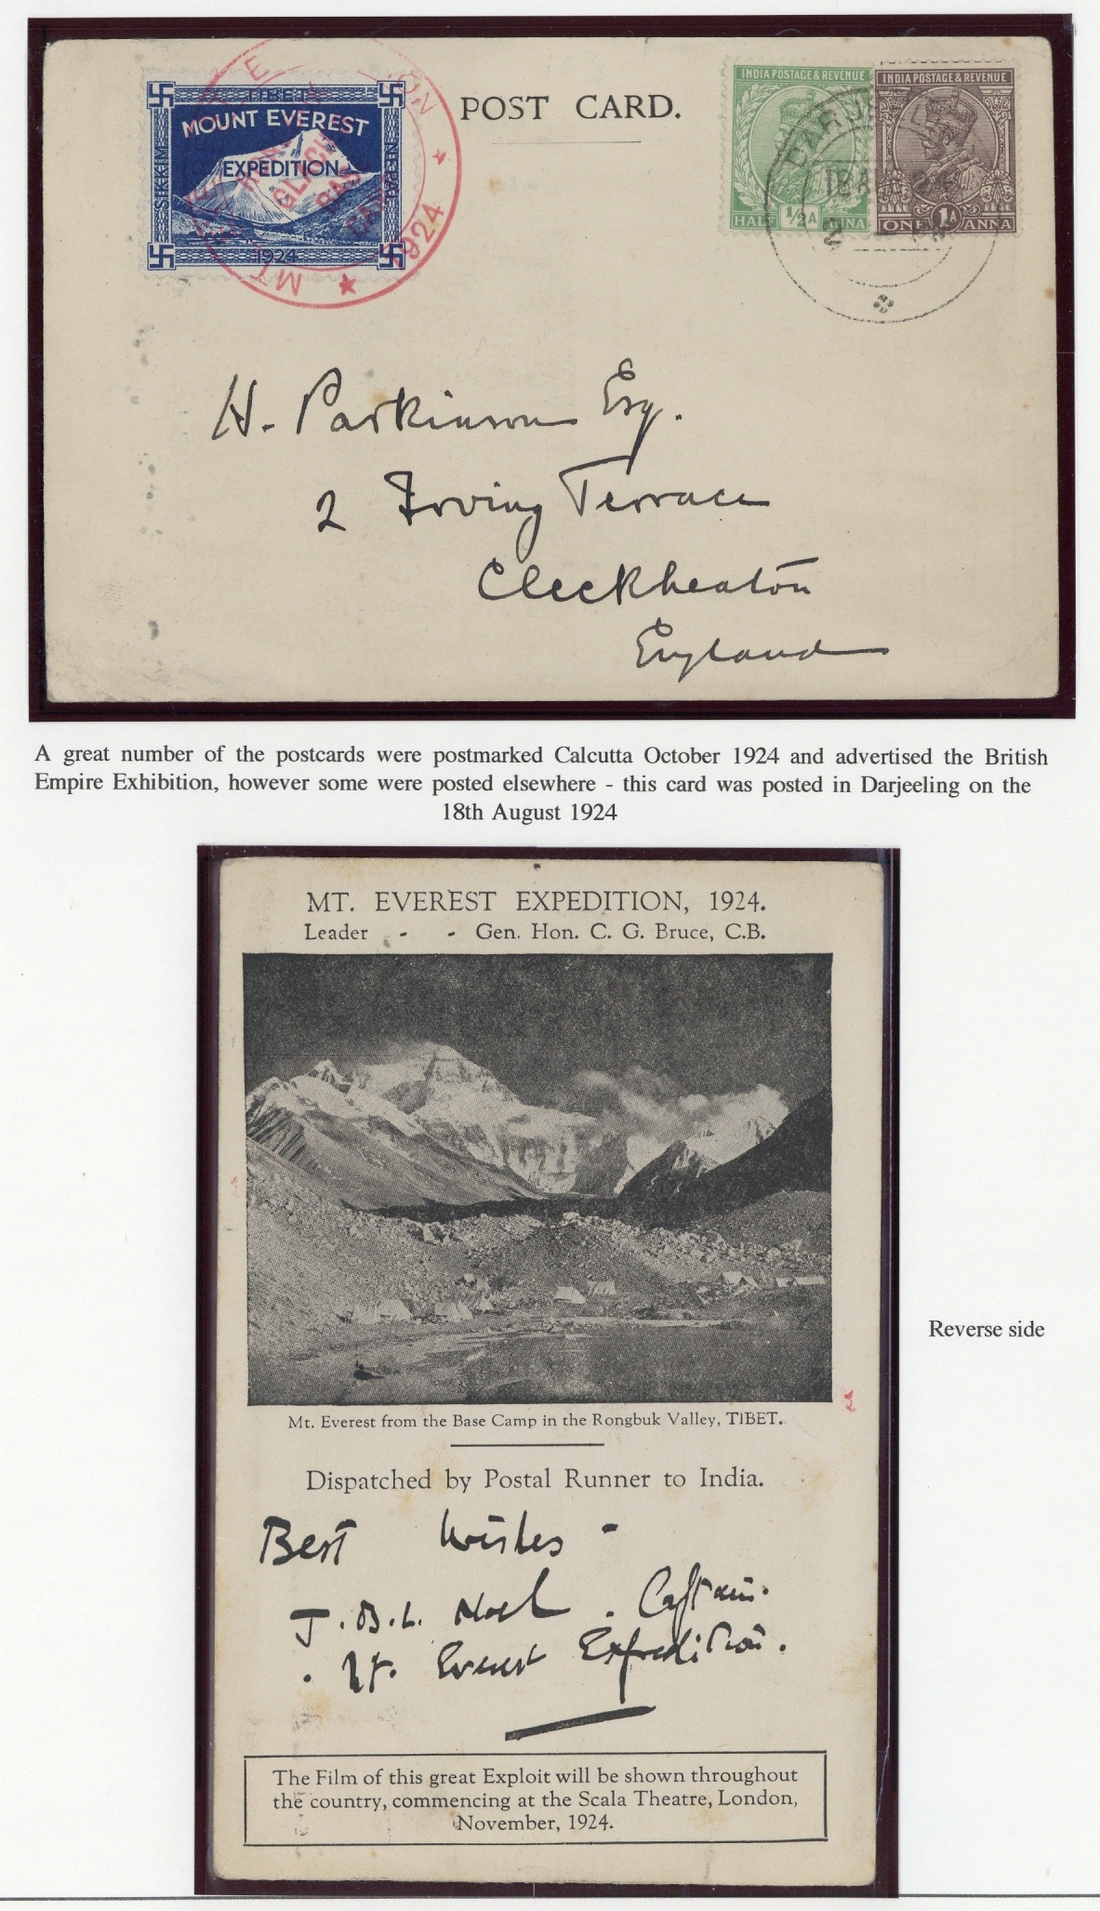 POST CARD.
TIBET
MOUNT EVEREST
EXPEDITION
SIKKIM
NEPAL
1924
MT
1924
INDIA POSTAGE & REVENUE
HALF 1/2A ANNA
INDIA POSTAGE & REVENUE
ONE 1A ANNA
H. Parkinson Esq.
2 Irving Terrace
Cleckheaton
England
A great number of the postcards were postmarked Calcutta October 1924 and advertised the British
Empire Exhibition, however some were posted elsewhere - this card was posted in Darjeeling on the
18th August 1924
MT. EVEREST EXPEDITION, 1924.
Leader - - Gen. Hon. C. G. Bruce, C.B.
Mt. Everest from the Base Camp in the Rongbuk Valley, TIBET.
Reverse side
Dispatched by Postal Runner to India.
Best Wishes -
J.B.L. Noel . Captain.
. Mt. Everest Expedition.
The Film of this great Exploit will be shown throughout
the country, commencing at the Scala Theatre, London,
November, 1924.